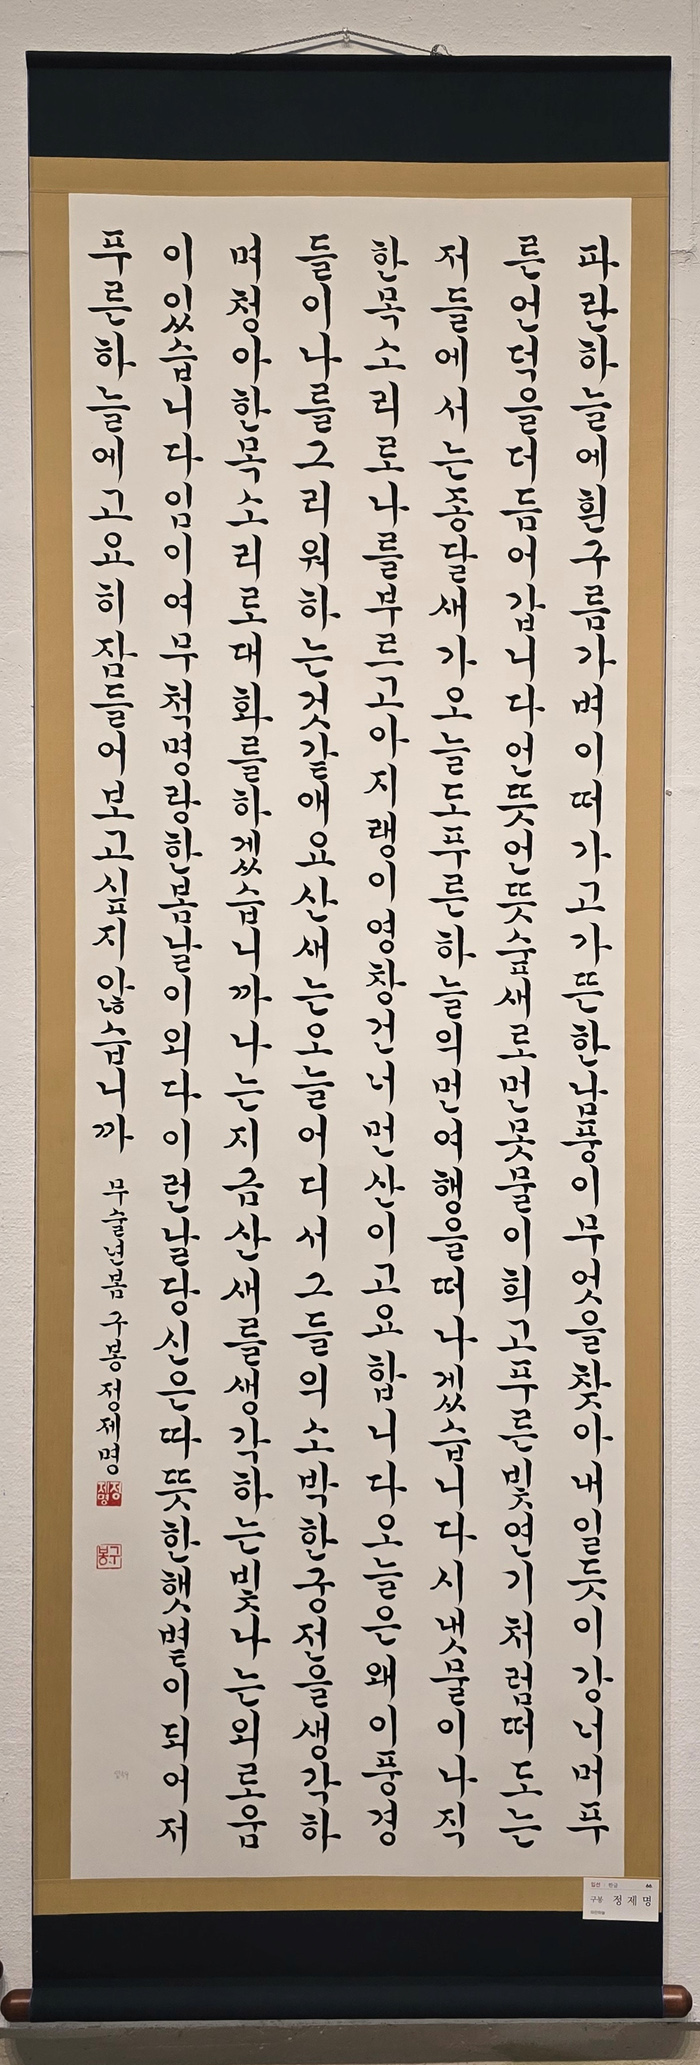 파란하늘에흰구름가벼이떠가고가뜬한남풍이무엇을찾아내일듯이강너머푸
른언덕을더듬어갑니다언뜻언뜻숲새로먼못물이희고푸른빛연기처럼떠도는
저들에서는종달새가오늘도푸른하늘의먼여행을떠나겠습니다시냇물이나직
한목소리로나를부르고아지랭이영창건너먼산이고요합니다오늘은왜이풍경
들이나를그리워하는것같애요산새는오늘어디서그들의소박한궁전을생각하
며청아한목소리로대화를하겠습니까나는지금산새를생각하는빛나는외로움
이있습니다임이여무척명랑한봄날이외다이런날당신은따뜻한햇볕이되어저
푸른하늘에고요히잠들어보고싶지않습니까
무술년봄 구봉정제명
정제명
구봉
입선 · 한글
구봉 정제명